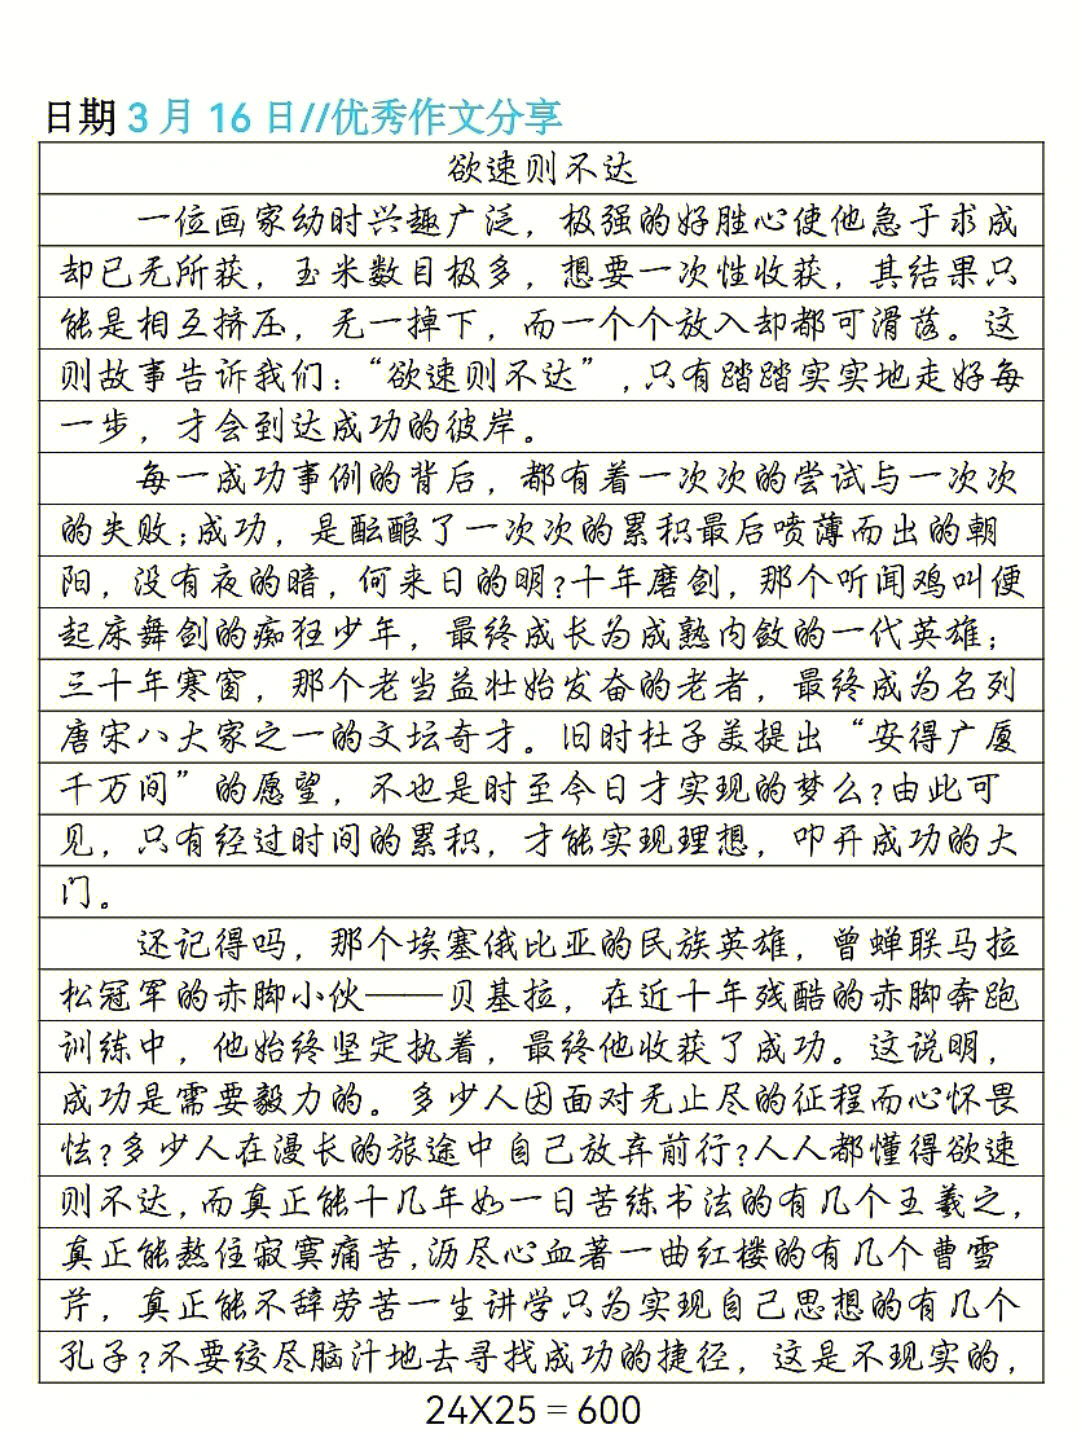 日期 3 月 16 日//优秀作文分享
欲速则不达
一位画家幼时兴趣广泛，极强的好胜心使他急于求成
却已无所获，玉米数目极多，想要一次性收获，其结果只
能是相互挤压，无一掉下，而一个个放入却都可滑落。这
则故事告诉我们：“欲速则不达”,只有踏踏实实地走好每
一步，才会到达成功的彼岸。
每一成功事例的背后，都有着一次次的尝试与一次次
的失败;成功，是酝酿了一次次的累积最后喷薄而出的朝
阳，没有夜的暗，何来日的明?十年磨剑，那个听闻鸡叫便
起床舞剑的痴狂少年，最终成长为成熟内敛的一代英雄；
三十年寒窗，那个老当益壮始发奋的老者，最终成为名列
唐宋八大家之一的文坛奇才。旧时杜子美提出“安得广厦
千万间”的愿望，不也是时至今日才实现的梦么?由此可
见，只有经过时间的累积，才能实现理想，叩开成功的大
门。
还记得吗，那个埃塞俄比亚的民族英雄，曾蝉联马拉
松冠军的赤脚小伙——贝基拉，在近十年残酷的赤脚奔跑
训练中，他始终坚定执着，最终他收获了成功。这说明，
成功是需要毅力的。多少人因面对无止尽的征程而心怀畏
怯?多少人在漫长的旅途中自己放弃前行?人人都懂得欲速
则不达,而真正能十几年如一日苦练书法的有几个王羲之，
真正能熬住寂寞痛苦,沥尽心血著一曲红楼的有几个曹雪
芹，真正能不辞劳苦一生讲学只为实现自己思想的有几个
孔子?不要绞尽脑汁地去寻找成功的捷径，这是不现实的，
24X25 = 600